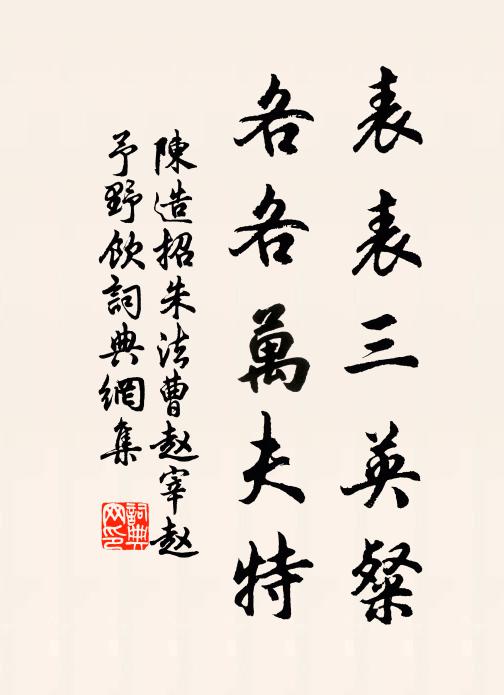 表表三英粲
各各萬夫特
陳造招朱法曹赵宰赵
予野飲詞典網集
詞典网印